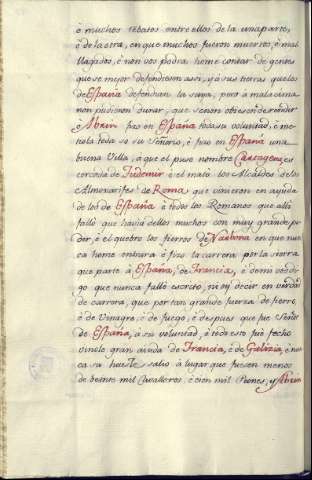 è muchos rebatos entre ellos de la una parte,
è de la otra, en que muchos fueron muertos, è mal
llagados, è non vos podra home contar de gentes
que se mejor defendiesen assi, y à sus tierras que los
de España defendian la suya, pero à mala cima
non pudieron durar, que se non obiesen de rendir
è Abrin fizo en España toda su voluntad, è me-
tiola toda so su Señorio, è fizo en España una
buena Villa, a que el puso nombre Cartagena, en
cercania de Tudemir è el mato los Alcaldes de los
Almoxarifes de Roma que vinieron en ayuda
de los de España à todos los Romanos que alli
fallò que havia dellos muchos con muy grande po-
der, è el quebro los fierros de Narbona en que nun-
ca home entrara è fizo la carrera por la sierra
que parte à España, de Francia, è como vos di-
go que nunca fallò escrito, ni oy decir en verdad
de carrera, que por tan grande fuerza de fierro,
è de Vinagre, è de fuego, è despues que fue Señor
de España, à su voluntad, è todo esto fue fecho
vinole gran ayuda de Francia, è de Galizia, è nun-
ca su hueste salio à lugar que fuesen menos
de beinte mil Cavalleros, è cien mil Peones; y Abrin